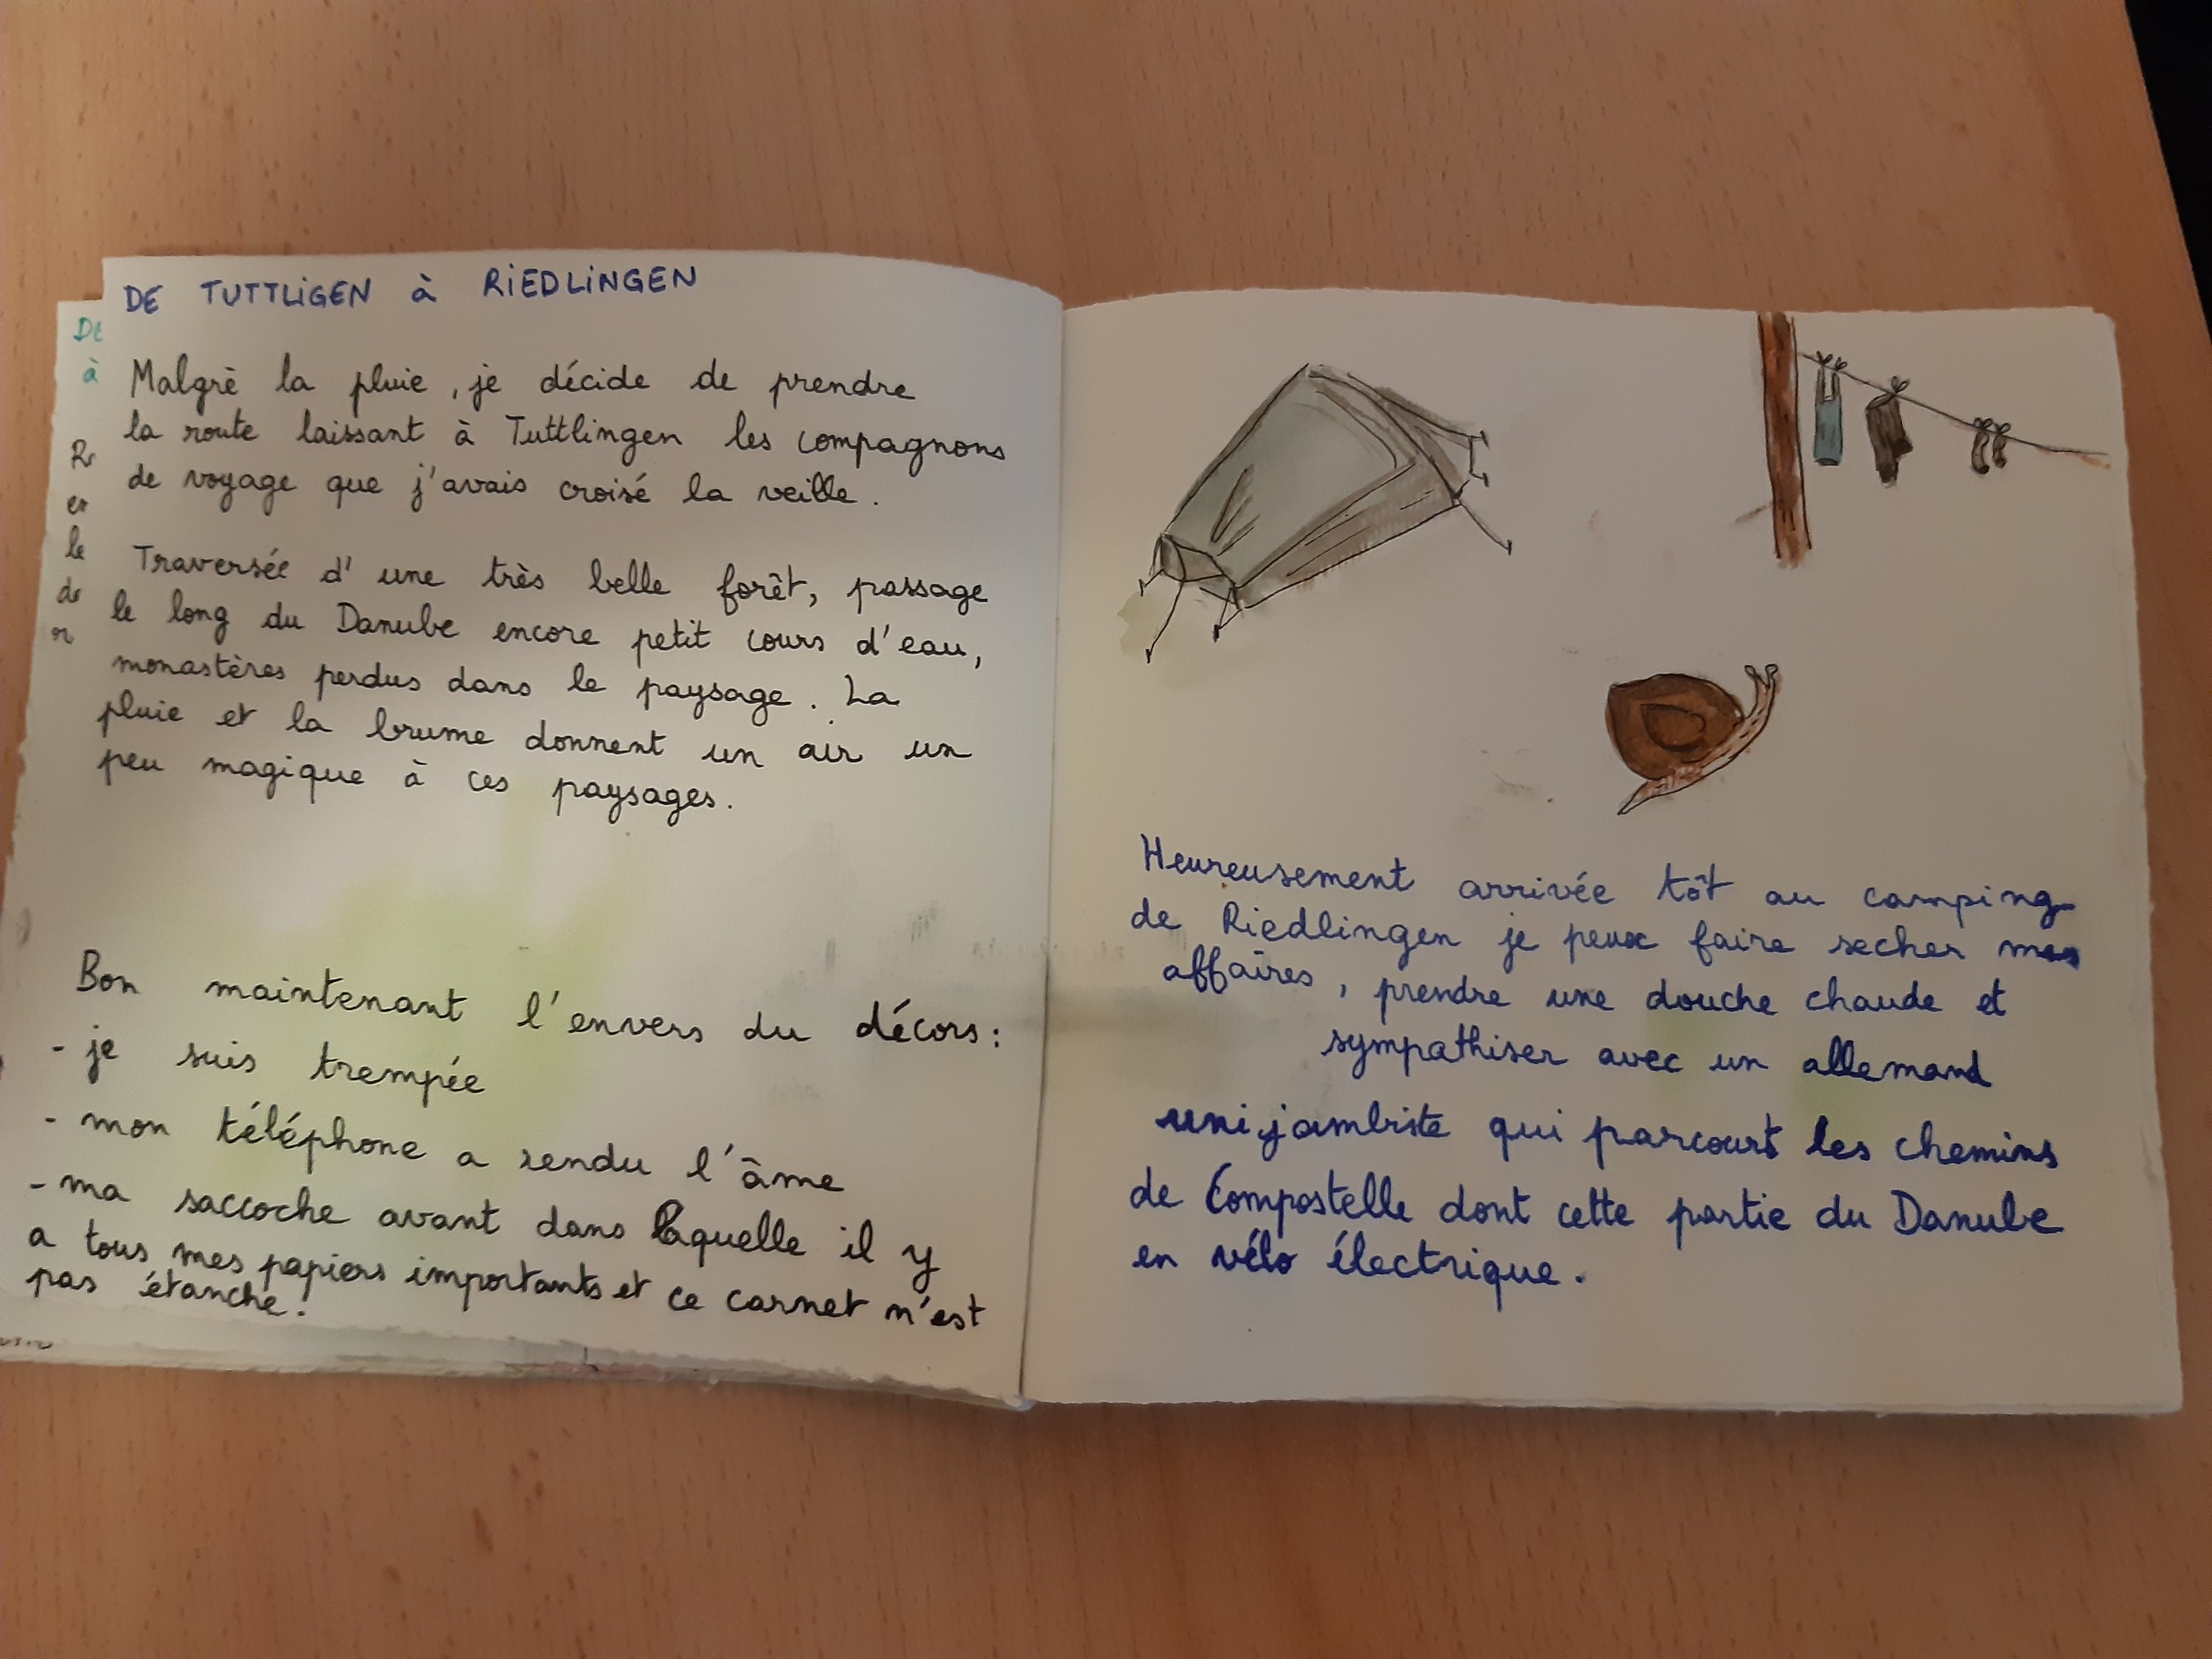 DE TUTTLIGEN à RIEDLINGEN
Malgrè la pluie, je décide de prendre
la route laissant à Tuttlingen les compagnons
de voyage que j'avais croisé la veille.
Traversée d'une très belle forêt, passage
le long du Danube encore petit cours d'eau,
monastères perdus dans le paysage. La
pluie et la brume donnent un air un
peu magique à ces paysages.
Bon maintenant l'envers du décors:
- je suis trempée
- mon téléphone a rendu l'âme
- ma saccoche avant dans laquelle il y
a tous mes papiers importants et ce carnet n'est
pas étanche.
De
à
er
le
de
Heureusement arrivée tôt au camping
de Riedlingen je peux faire secher mes
affaires, prendre une douche chaude et
sympathiser avec un allemand
unijambiste qui parcourt les chemins
de Compostelle dont cette partie du Danube
en vélo électrique.